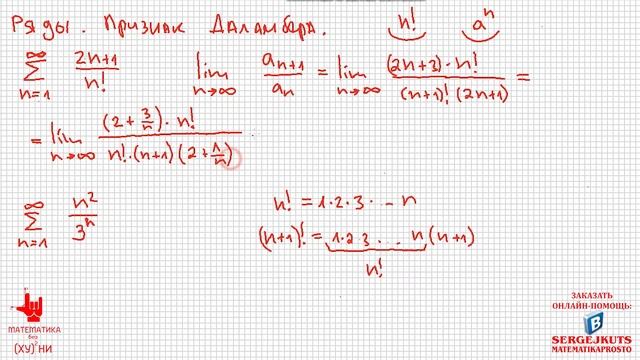 Ряды. Признак Даламбера. n! aⁿ
∑_{n=1}^{∞} (2n+1)/n!    lim_{n→∞} a_{n+1}/a_n = lim_{n→∞} ((2n+3)·n!)/((n+1)!(2n+1)) =
= lim_{n→∞} ((2+3/n)·n!)/(n!·(n+1)(2+1/n))
∑_{n=1}^{∞} n²/3ⁿ    n! = 1·2·3·...n
(n+1)! = 1·2·3...n(n+1)
n!
МАТЕМАТИКА
без
(ХУ)²НИ
ЗАКАЗАТЬ
ОНЛАЙН-ПОМОЩЬ:
B
SERGEJKUTS
MATEMATIKAPROSTO